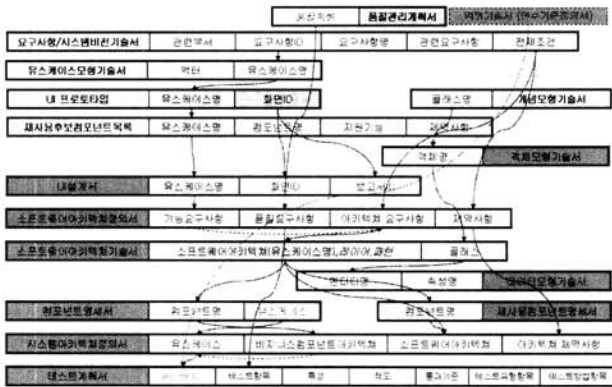 품질속성 품질관리계획서
요구사항/시스템비전기술서 관련부서 요구사항ID 요구사항명 관련요구사항 전제조건
유스케이스모형기술서 액터 유스케이스명
UI 프로토타입 유스케이스명 화면ID 클래스명 개념모형기술서
재사용후보컴포넌트목록 유스케이스명 컴포넌트명 지원기능 제약사항
객체명 객체모형기술서
UI설계서 유스케이스명 화면ID
소프트웨어아키텍처정의서 기능요구사항 품질요구사항 아키텍처 요구사항 제약사항
소프트웨어아키텍처기술서 소프트웨어아키텍처(유스케이스명),레이어,패턴 클래스
엔터티명 속성명 데이터모형기술서
컴포넌트명세서 컴포넌트명 컴포넌트명 재사용컴포넌트명세서
시스템아키텍처정의서 유스케이스 비지니스컴포넌트아키텍처 소프트웨어아키텍처 아키텍처 제약사항
테스트계획서 테스트항목 특성 척도 통과기준 테스트유형항목 테스트방법항목